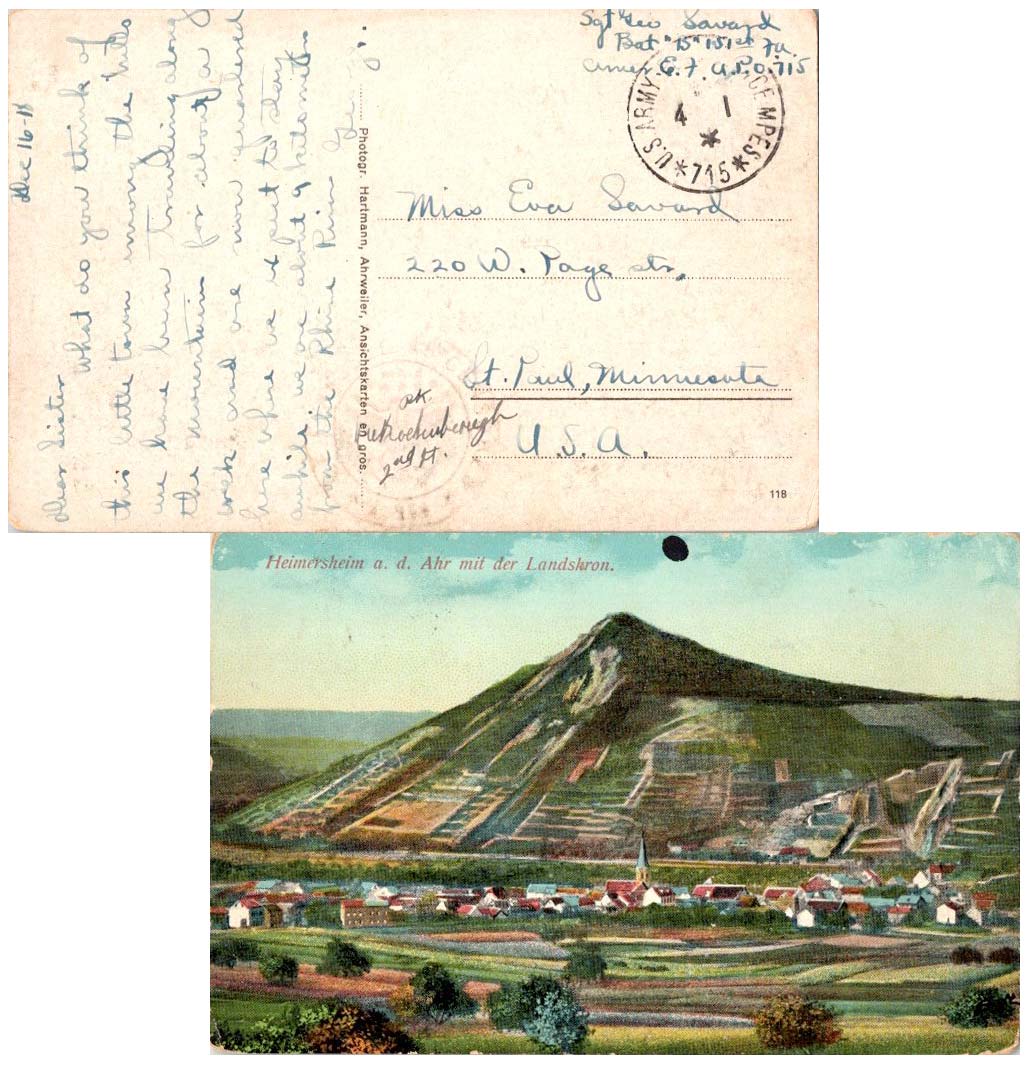 Sgt Geo Savard
Bat "B" 151st F.A.
Amer. E. F. A.P.O. 715
U.S. ARMY
MPES
4 1
*
* 715 *
Dec 16-18
Dear Sister
What do you think of
this little town among the hills
we have been traveling along
the mountains for about a
week and are now quartered
here where we expect to stay
awhile we are about 9 kilometers
from the Rhine River
Photogr. Hartmann, Ahrweiler, Ansichtskarten en gros.
Miss Eva Savard
220 W. Page str,
St. Paul, Minnesota
U.S.A.
OK.
2nd Lt.
118
Heimersheim a. d. Ahr mit der Landskron.